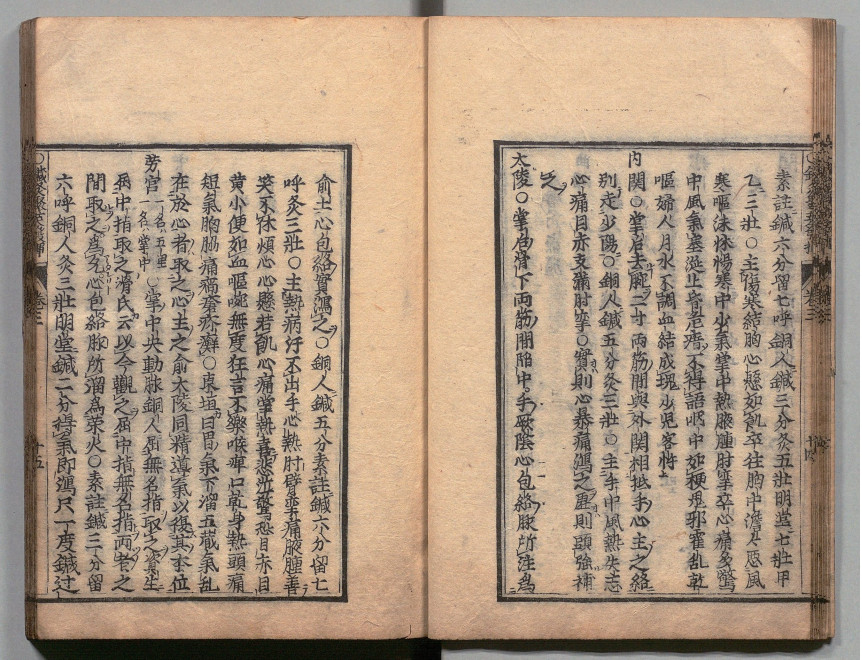 素註鍼六分留七呼銅人鍼三分灸五壯明堂七壯甲
乙三壯〇主傷寒結胸心懸如飢卒往胸中澹々惡風
寒嘔沫怵惕寒中少氣掌中熱腋腫肘攣卒心痛多驚
中風氣塞涎上昏危瘖不得語咽中如梗鬼邪霍亂乾
嘔婦人月水不調血結成塊少兒客忤
内関〇掌后去腕二寸両筋間與外関相抵手心主之絡
別走少陽〇銅人鍼五分灸三壯〇主手中風熱失志
心痛目赤支滿肘攣〇實則心暴痛瀉之虛則頭強補
之
太陵〇掌后骨下両筋間陷中手厥陰心包絡脉所注爲
俞土心包絡實瀉之〇銅人鍼五分素註鍼六分留七
呼灸三壯〇主熱病汗不出手心熱肘臂攣痛腋腫善
笑不休煩心心懸若飢心痛掌熱喜悲泣驚恐目赤目
黄小便如血嘔啘無度狂言不樂喉痺口乾身熱頭痛
短氣胸脇痛瘑瘡疥癬〇東垣曰胃氣下溜五藏氣乱
在於心者取之心主之俞太陵同精導氣以復其本位
労宮 一名五里 一名掌中 〇掌中央動脉銅人屈無名指取之資生
屈中指取之滑氏云以今觀之屈中指無名指両者之
間取之爲允心包絡脉所溜爲荣火〇素註鍼三分留
六呼銅人灸三壯明堂鍼二分得氣即瀉只一度鍼过
卷三
十五